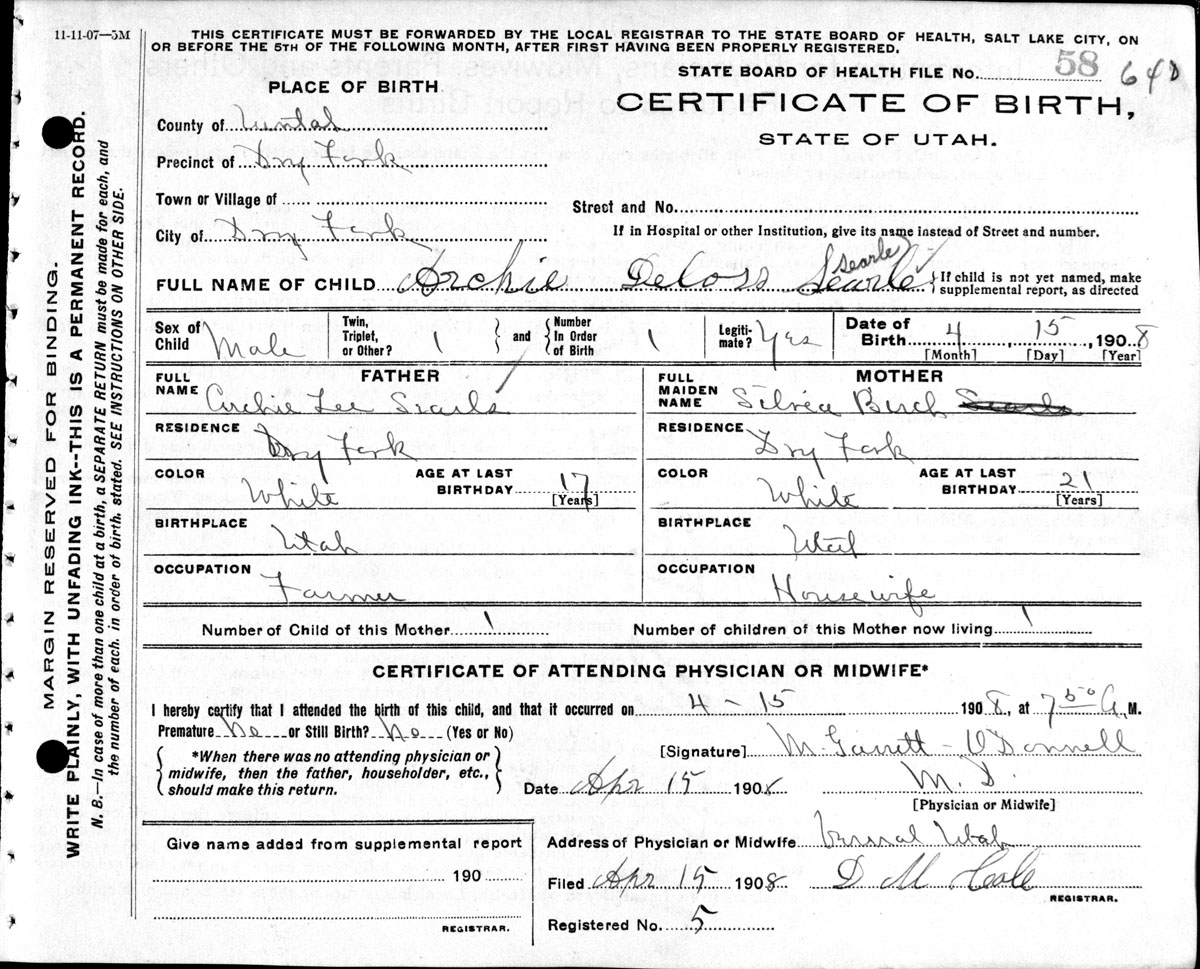 11-11-07—5M
THIS CERTIFICATE MUST BE FORWARDED BY THE LOCAL REGISTRAR TO THE STATE BOARD OF HEALTH, SALT LAKE CITY, ON
OR BEFORE THE 5TH OF THE FOLLOWING MONTH, AFTER FIRST HAVING BEEN PROPERLY REGISTERED.
STATE BOARD OF HEALTH FILE No. 58 64D
PLACE OF BIRTH
CERTIFICATE OF BIRTH,
STATE OF UTAH.
County of Uintah
Precinct of Dry Fork
Town or Village of
Street and No.
City of Dry Fork
If in Hospital or other Institution, give its name instead of Street and number.
Searle
FULL NAME OF CHILD Archie Deloss Searle { If child is not yet named, make supplemental report, as directed
Sex of Child Male Twin, Triplet, or Other? 1 } and { Number In Order of Birth 1 Legiti-mate? Yes Date of Birth 4 15 1908
[Month] [Day] [Year]
FATHER MOTHER
FULL NAME Archie Lee Searls FULL MAIDEN NAME Silvia Burch Searls
RESIDENCE Dry Fork RESIDENCE Dry Fork
COLOR White AGE AT LAST BIRTHDAY 17 [Years] COLOR White AGE AT LAST BIRTHDAY 21 [Years]
BIRTHPLACE Utah BIRTHPLACE Utah
OCCUPATION Farmer OCCUPATION Housewife
Number of Child of this Mother 1 Number of children of this Mother now living 1
CERTIFICATE OF ATTENDING PHYSICIAN OR MIDWIFE*
I hereby certify that I attended the birth of this child, and that it occurred on 4 - 15 1908, at 7 50 A. M.
Premature No or Still Birth? No (Yes or No)
[Signature] M. Garrett - O'Donnell
{ *When there was no attending physician or
midwife, then the father, householder, etc.,
should make this return. }
Date Apr 15 1908 M. D.
[Physician or Midwife]
Give name added from supplemental report
190
REGISTRAR.
Address of Physician or Midwife Vernal Utah
Filed Apr 15 1908 D M
REGISTRAR.
Registered No. 5
MARGIN RESERVED FOR BINDING.
WRITE PLAINLY, WITH UNFADING INK--THIS IS A PERMANENT RECORD.
N. B.—In case of more than one child at a birth, a SEPARATE RETURN must be made for each, and
the number of each, in order of birth, stated. SEE INSTRUCTIONS ON OTHER SIDE.